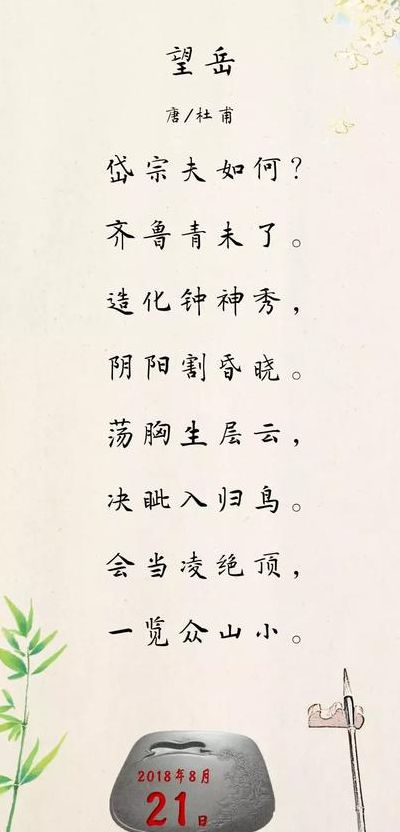 望岳
唐/杜甫
岱宗夫如何？
齐鲁青未了。
造化钟神秀，
阴阳割昏晓。
荡胸生层云，
决眦入归鸟。
会当凌绝顶，
一览众山小。
2018年8月
21日